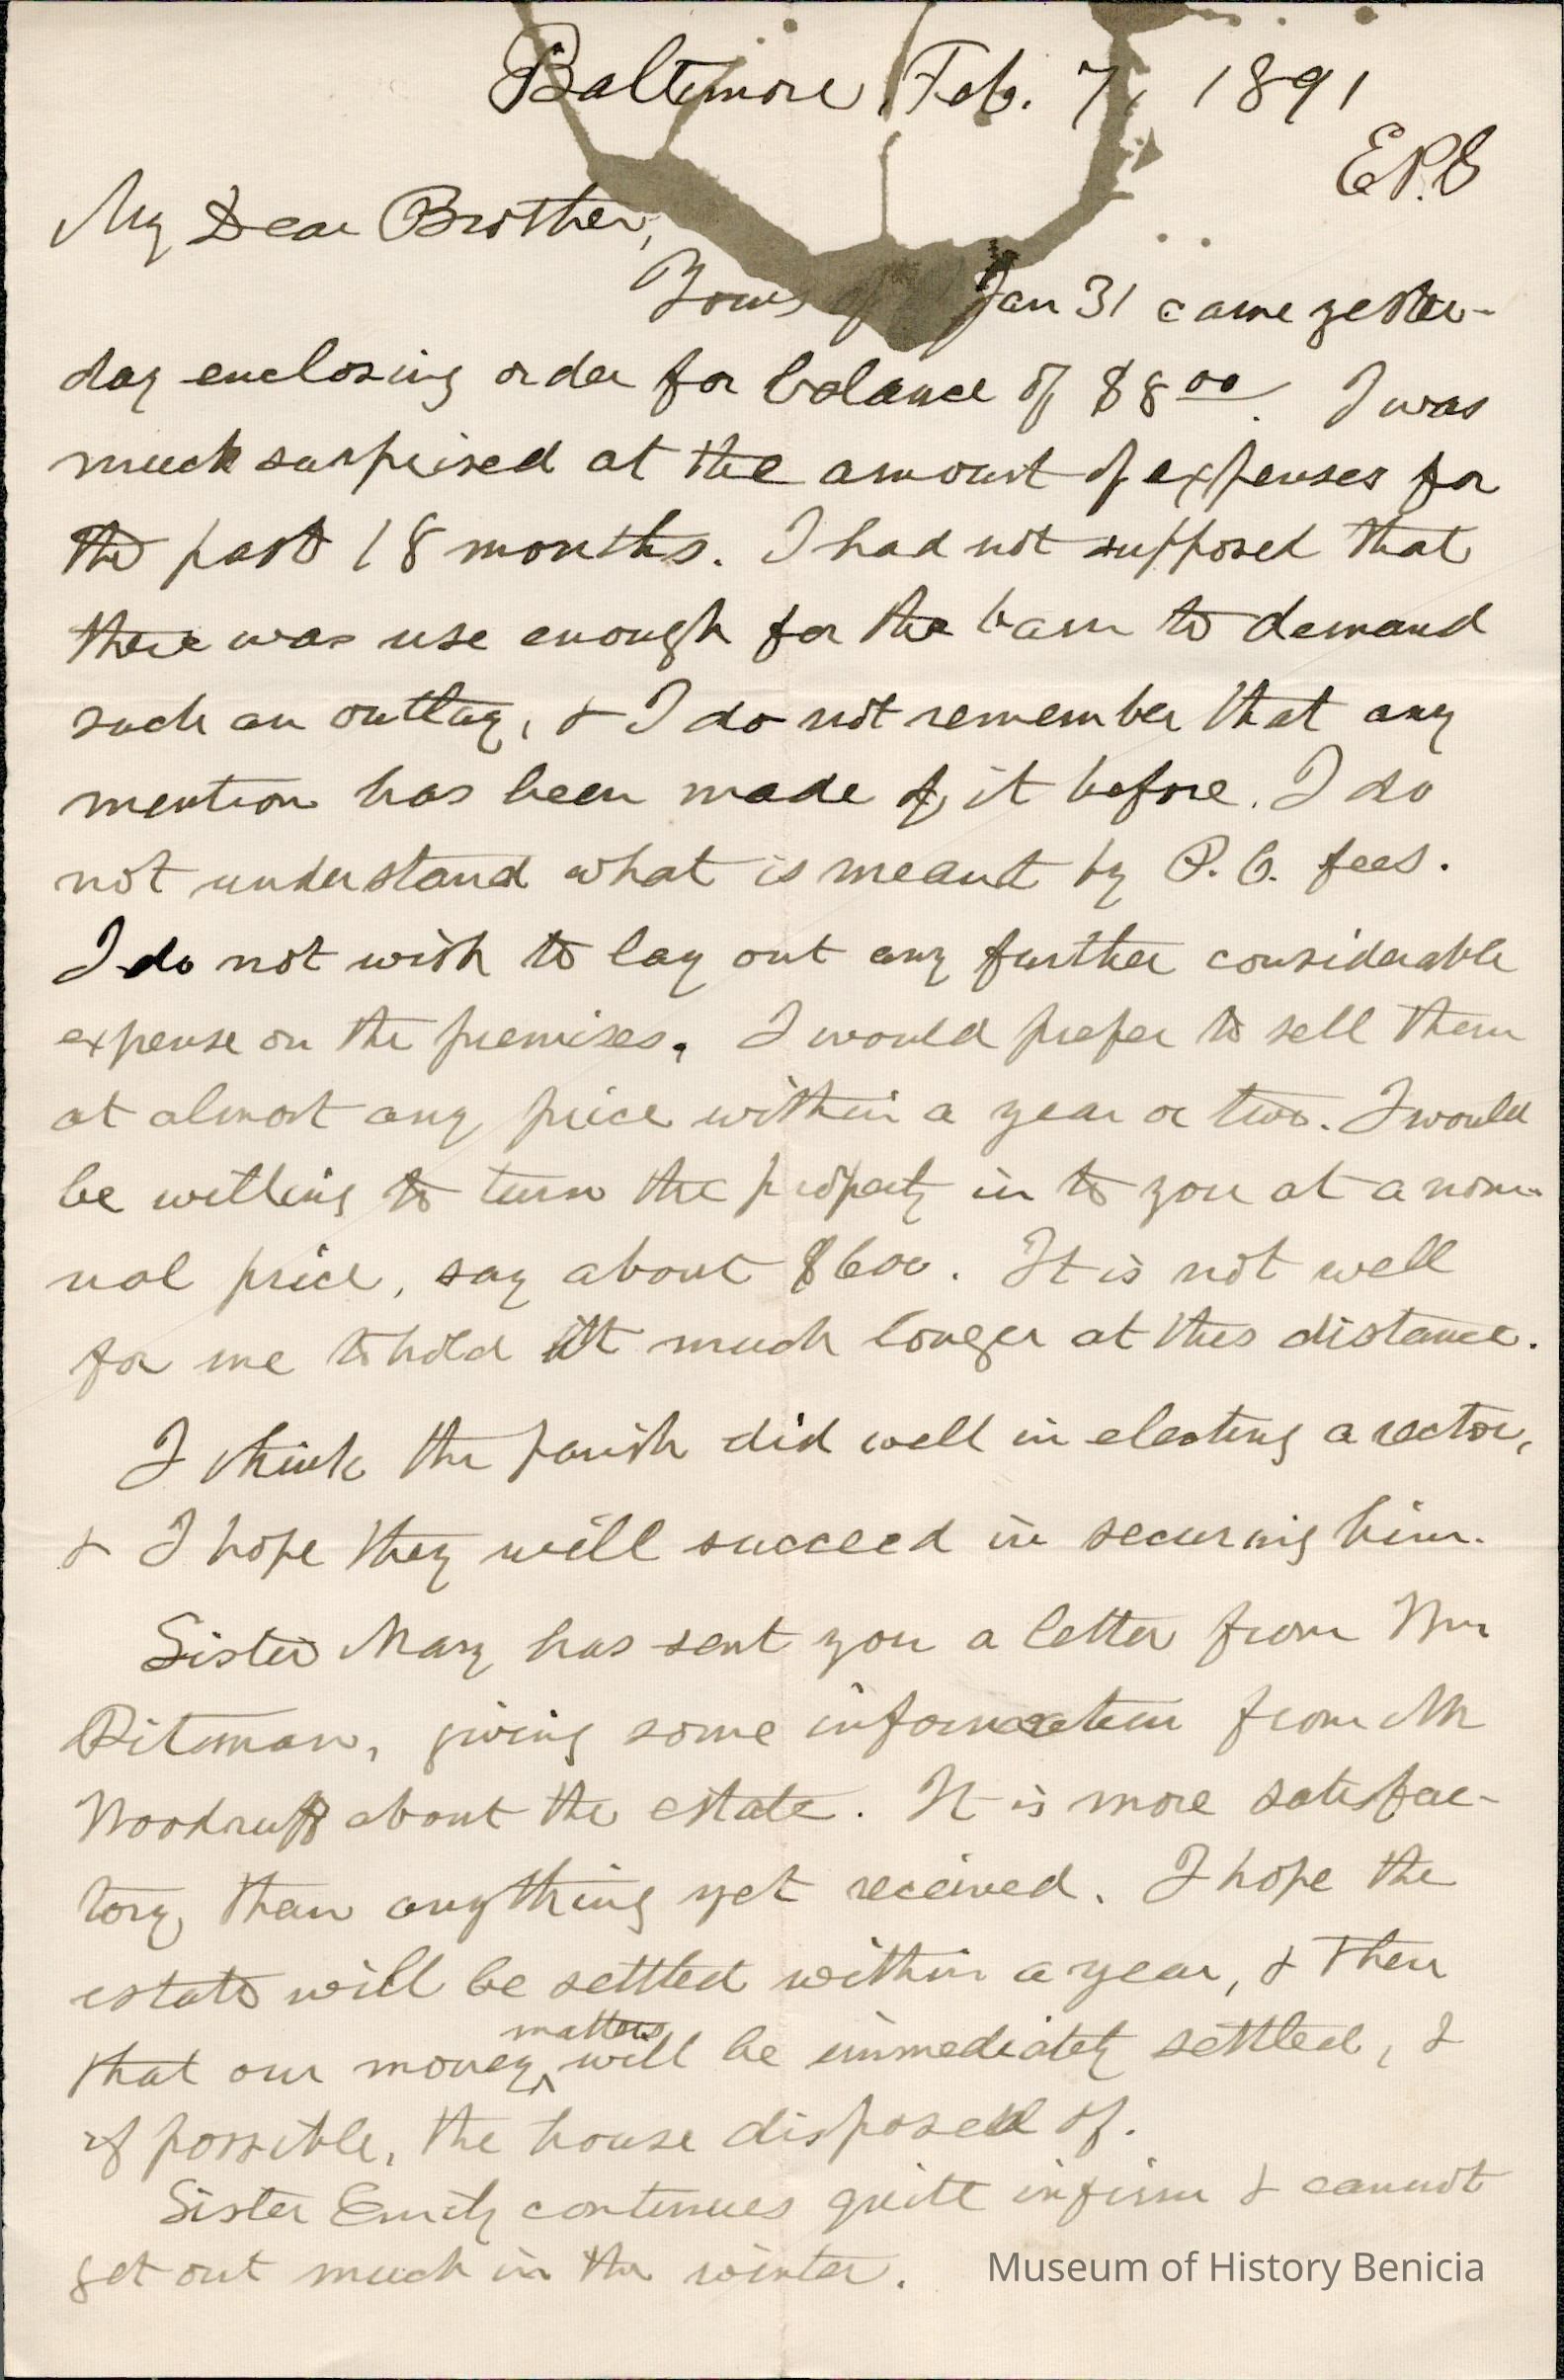 Baltimore, Feb. 7, 1891
E.P.S
My Dear Brother,
Yours of Jan 31 came yester-
day enclosing order for balance of $8 00. I was
much surprised at the amount of expenses for
the past 18 months. I had not supposed that
there was use enough for the barn to demand
such an outlay, & I do not remember that any
mention has been made of it before. I do
not understand what is meant by P.O. fees.
I do not wish to lay out any further considerable
expense on the premises. I would prefer to sell them
at almost any price within a year or two. I would
be willing to turn the property in to you at a nomi-
nal price, say about $600. It is not well
for me to hold it much longer at this distance.
I think the parish did well in electing a rector,
& I hope they will succeed in securing him.
Sister Mary has sent you a letter from
Pitman, giving some information from Mr
Woodruff about the estate. It is more satisfac-
tory than anything yet received. I hope the
estate will be settled within a year, & then
matters
that our money ^ will be immediately settled, &
if possible, the house disposed of.
Sister Emily continues quite infirm & cannot
get out much in the winter.
Museum of History Benicia